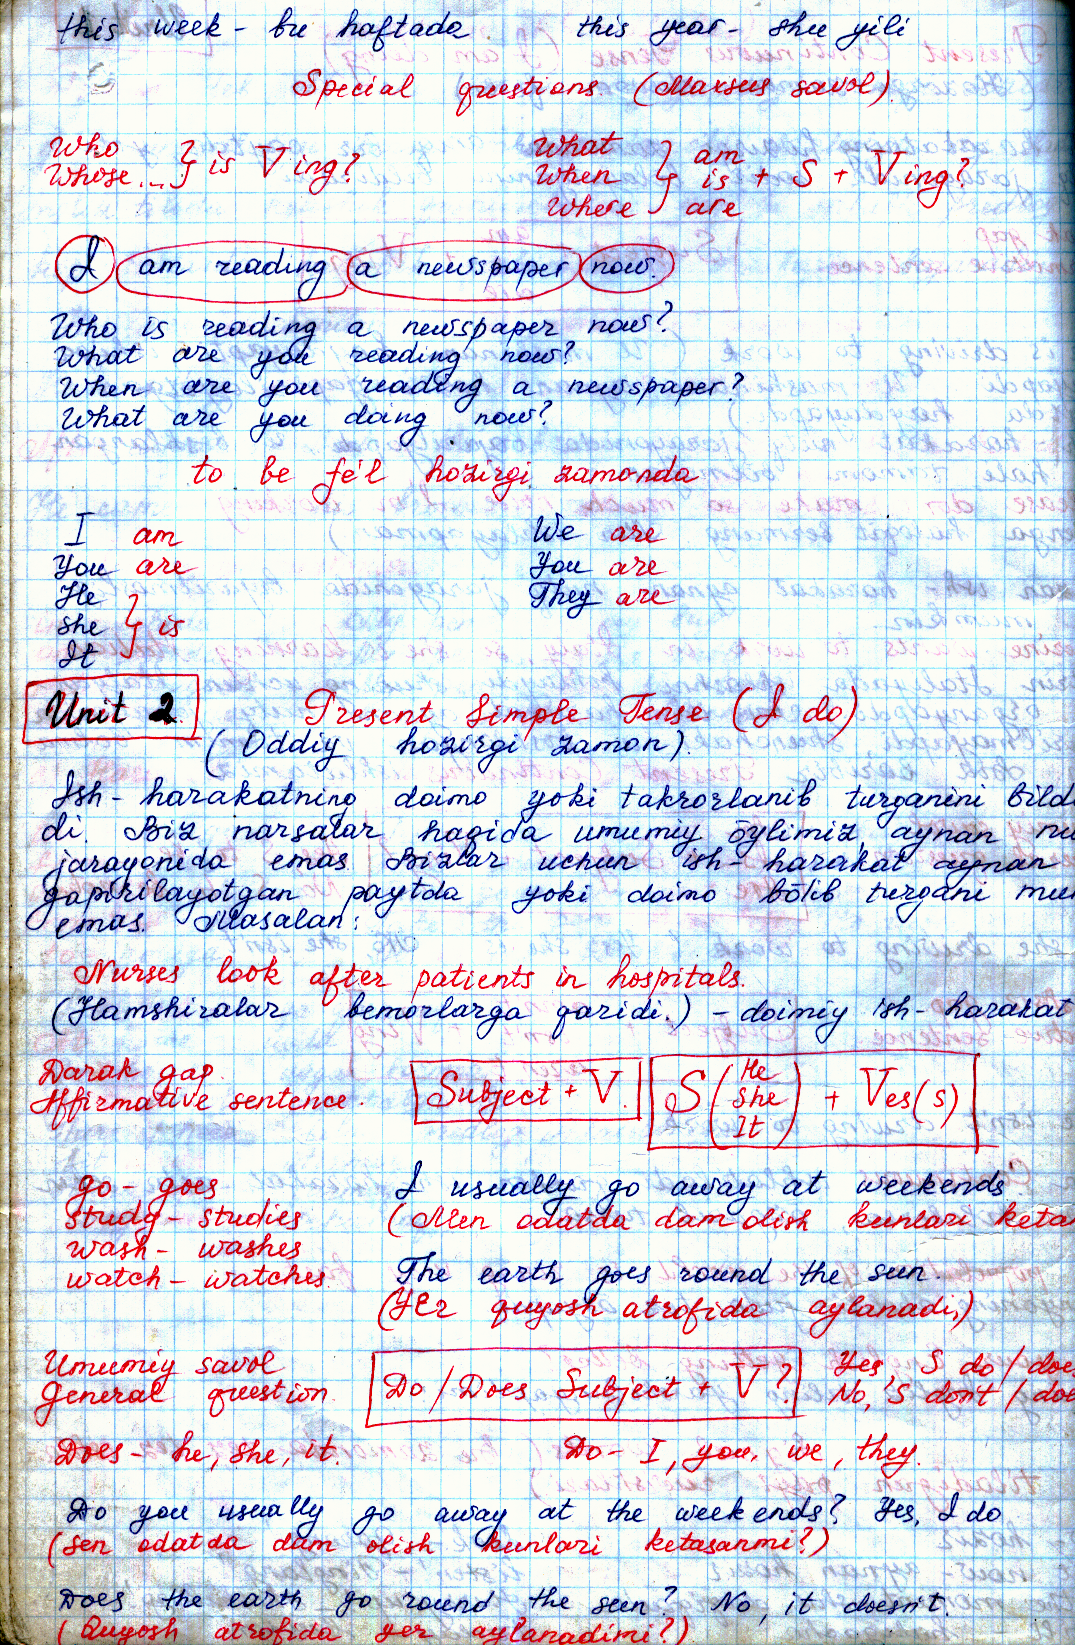 this week - bu haftada this year - shu yili
Special questions (Maxsus savol).
Who
Whose... } is Ving?
What
When
Where } am
is
are + S + Ving?
I am reading a newspaper now.
Who is reading a newspaper now?
What are you reading now?
When are you reading a newspaper?
What are you doing now?
to be fe'l hozirgi zamonda
I am We are
You are You are
He They are
She } is
It
Unit 2. Present Simple Tense (I do)
(Oddiy hozirgi zamon).
Ish-harakatning doimo yoki takrorlanib turganini bild
di. Biz narsalar haqida umumiy õylimiz, aynan nu
jarayonida emas. Bizlar uchun ish-harakat aynan
gapirilayotgan paytda yoki doimo bõlib turgani mu
emas. Masalan:
Nurses look after patients in hospitals.
(Hamshiralar bemorlarga qaridi.) - doimiy ish-harakat
Darak gap.
Affirmative sentence. Subject + V. S (He
She
It) + Ves(s)
go - goes I usually go away at weekends
study - studies (Men odatda dam olish kunlari keta
wash - washes
watch - watches. The earth goes round the sun.
(Yer quyosh atrofida aylanadi,)
Umumiy savol
General question. Do / Does Subject + V? Yes, S do / does
No, S don't / doe
Does - he, she, it. Do - I, you, we, they.
Do you usually go away at the weekends? Yes, I do
(Sen odatda dam olish kunlari ketasanmi?)
Does the earth go round the sun? No, it doesn't.
(Quyosh atrofida yer aylanadimi?)